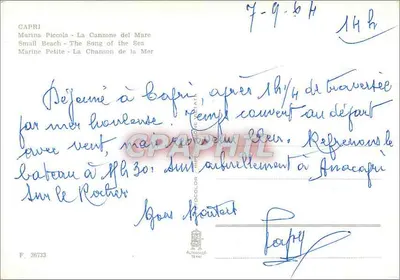 7-9-64
14h
CAPRI
Marina Piccola - La Canzone del Mare
Small Beach - The Song of the Sea
Marine Petite - La Chanson de la Mer
Déjeuné à Capri, après 1h1/4 de traversée
par mer houleuse. Temps couvert au départ
avec vent, mais revenu bleu. Reprenons le
bateau à 16h30. Suis actuellement à Anacapri
sur le Rocher
Bons
Papy
F. 26733